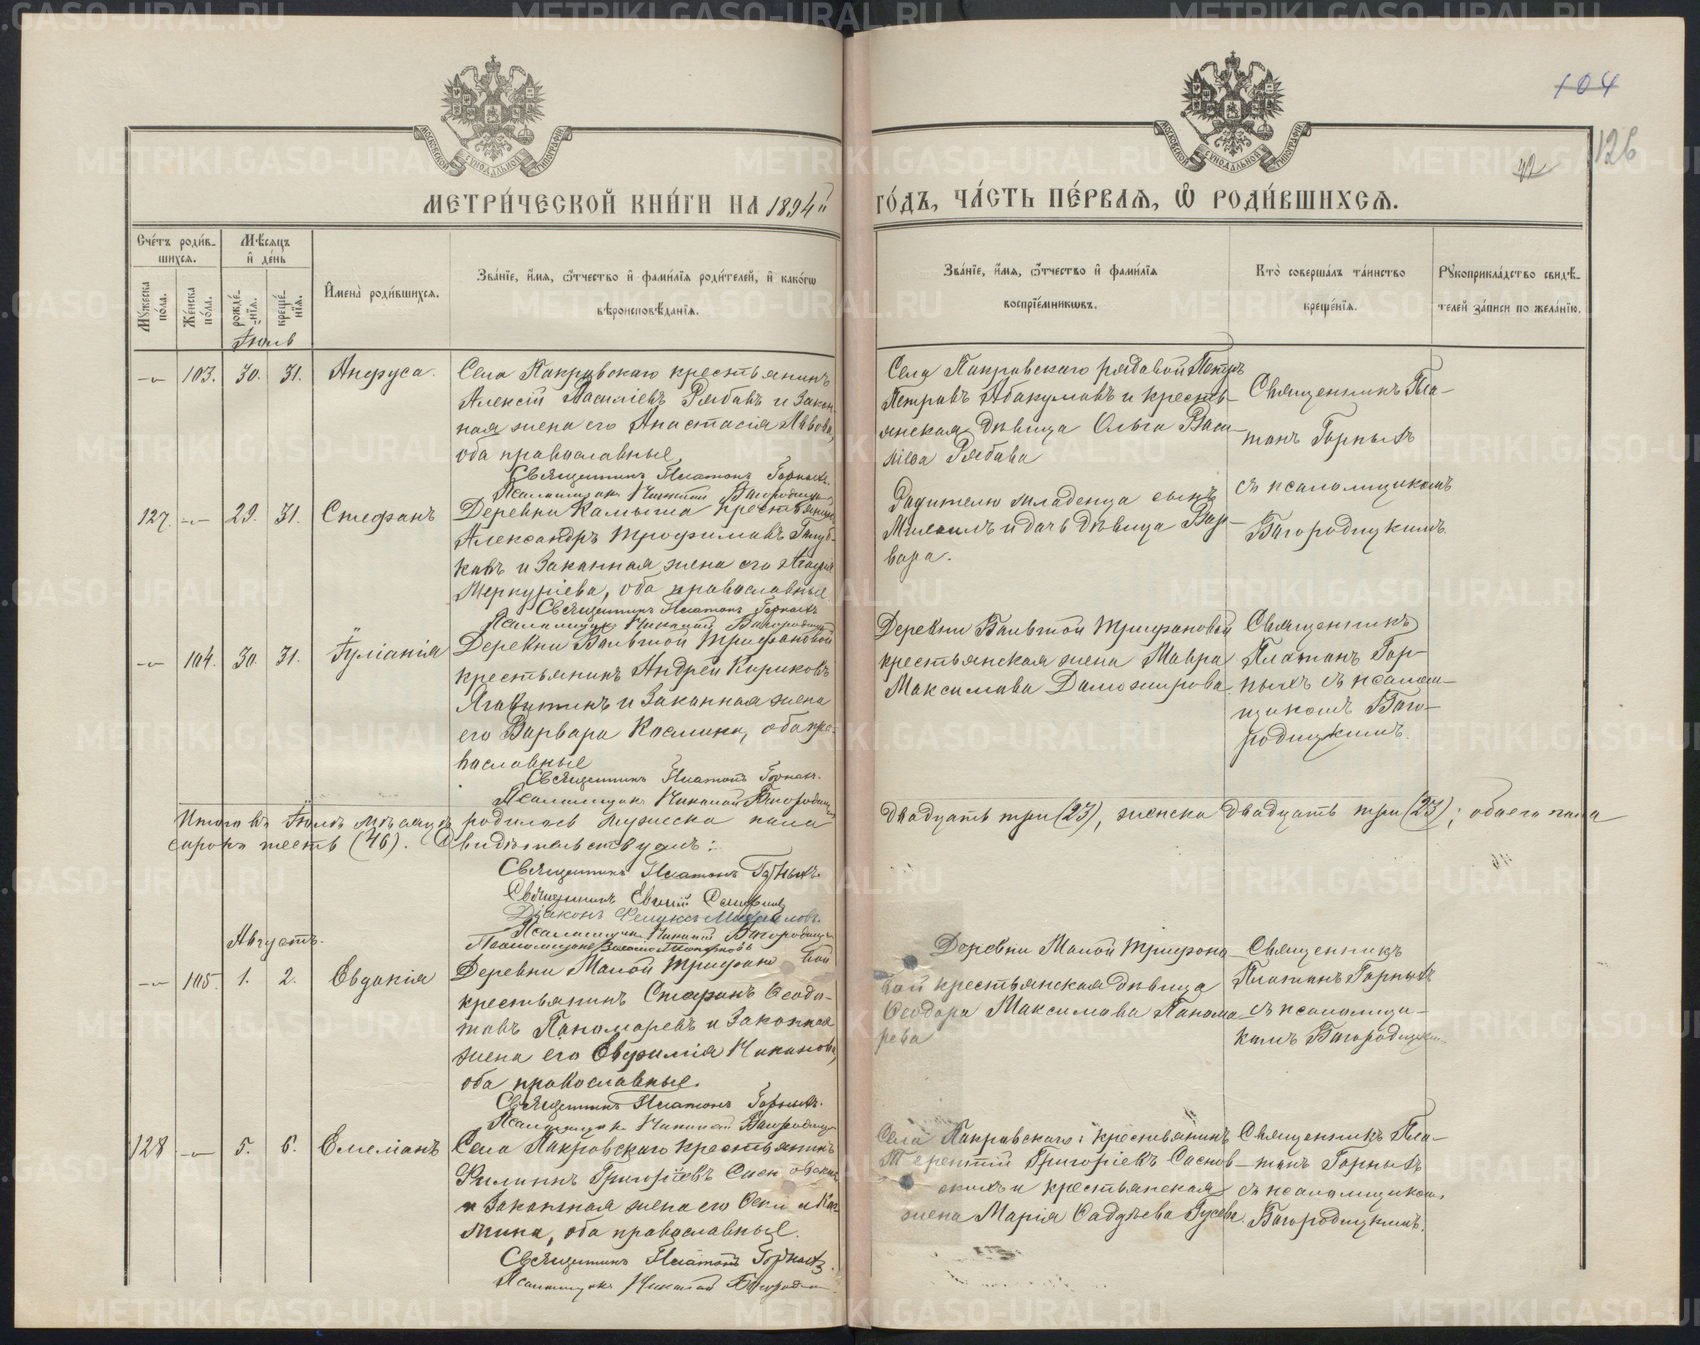 104
126
42
МОСКОВСКОЙ СѴНОДАЛЬНОЙ ТИПОГРАФІИ
МОСКОВСКОЙ СѴНОДАЛЬНОЙ ТИПОГРАФІИ
МЕТРИ́ЧЕСКОЙ КНИ́ГИ НА 1894й
ГО́ДЪ, ЧА́СТЬ ПЕ́РВАЯ, Ѽ РОДИ́ВШИХСЯ.
Сче́тъ роди́в-
шихся.
Мѣ́сяцъ
и҆ де́нь
Му́жеска
по́ла.
Же́нска
по́ла.
рожде́-
нїѧ.
креще́-
нїѧ.
И҆мена̀ роди́вшихся.
Зва́нїе, и҆́мя, ѻ҆́тчество и҆ фами́лїя роди́телей, и҆ како́гѡ
вѣроисповѣ́данїя.
Зва́нїе, и҆́мя, ѻ҆́тчество и҆ фами́лїя
воспрїе́мникѡвъ.
Кто̀ соверша́лъ та́инство
креще́нїя.
Рꙋкоприкла́дство свидѣ́-
телей за́писи по жела́нїю.
Іюль
—„— 103. 30. 31. Анфуса.
Села Покровскаго крестьянинъ
Алексій Василіевъ Рябовъ и закон-
ная жена его Анастасія Львова,
оба православные
Священникъ Платонъ Горныхъ.
Псаломщикъ Николай Богородицкій
Села Покровскаго рядовой Петръ
Петровъ Абакумовъ и кресть-
янская дѣвица Ольга Васи-
лиева Рябова
Священникъ Пла-
тонъ Горныхъ
съ псаломщикомъ
Богородицкимъ.
127. —„— 29. 31. Стефанъ
Деревни Камыша крестьянинъ
Александръ Трофимовъ Голуб-
ковъ и законная жена его
Меркуріева, оба православные
Священникъ Платонъ Горныхъ
Псаломщикъ Николай Богородицкій
Родителю младенца сынъ
Михаилъ и дочь дѣвица Вар-
вара.
—„— 104. 30. 31. Іуліанія
Деревни Большой Трифановой
крестьянинъ Андрей Кириковъ
и законная жена
его Варвара Космина, оба пра-
вославные
Священникъ Платонъ Горныхъ.
Псаломщикъ Николай Богородицкій
Деревни Большой Трифановой
крестьянская жена Мавра
Максимова Доможирова
Священникъ
Платонъ Гор-
ныхъ съ псалом-
щикомъ Бого-
родицкимъ.
Итого въ Іюлѣ мѣсяцѣ родилось мужеска пола двадцать три (23), женска двадцать три (23); обоего пола
сорокъ шесть (46). Свидѣтельствуемъ:
Священникъ Платонъ Горныхъ.
Священникъ
Діаконъ
Псаломщикъ Николай Богородицкій
Псаломщикъ
Августъ.
—„— 105. 1. 2. Евдокія
Деревни Малой Трифоно вой
крестьянинъ Стефанъ Ѳеодо-
товъ Пономаревъ и законная
жена его Евфимія Никонова,
оба православные.
Священникъ Платонъ Горныхъ.
Псаломщикъ Николай Богородицкій
Деревни Малой Трифоно-
вой крестьянская дѣвица
Ѳеодора Максимова Понома-
рева
Священникъ
Платонъ Горныхъ
съ псаломщи-
комъ Богородицки-
128 —„— 5. 6. Емеліанъ
Села Покровскаго крестьянинъ
Филиппъ Григоріевъ Сосновскихъ
и законная жена его
Козмина, оба православные.
Священникъ Платонъ Горныхъ.
Псаломщикъ Николай Богородиц
Села Покровскаго: крестьянинъ
Терентій Григоріевъ Соснов-
скихъ и крестьянская
жена Марія Гусева.
Священникъ Пла-
тонъ Горныхъ
съ псаломщикомъ
Богородицкимъ.
METRIKI.GASO-URAL.RU